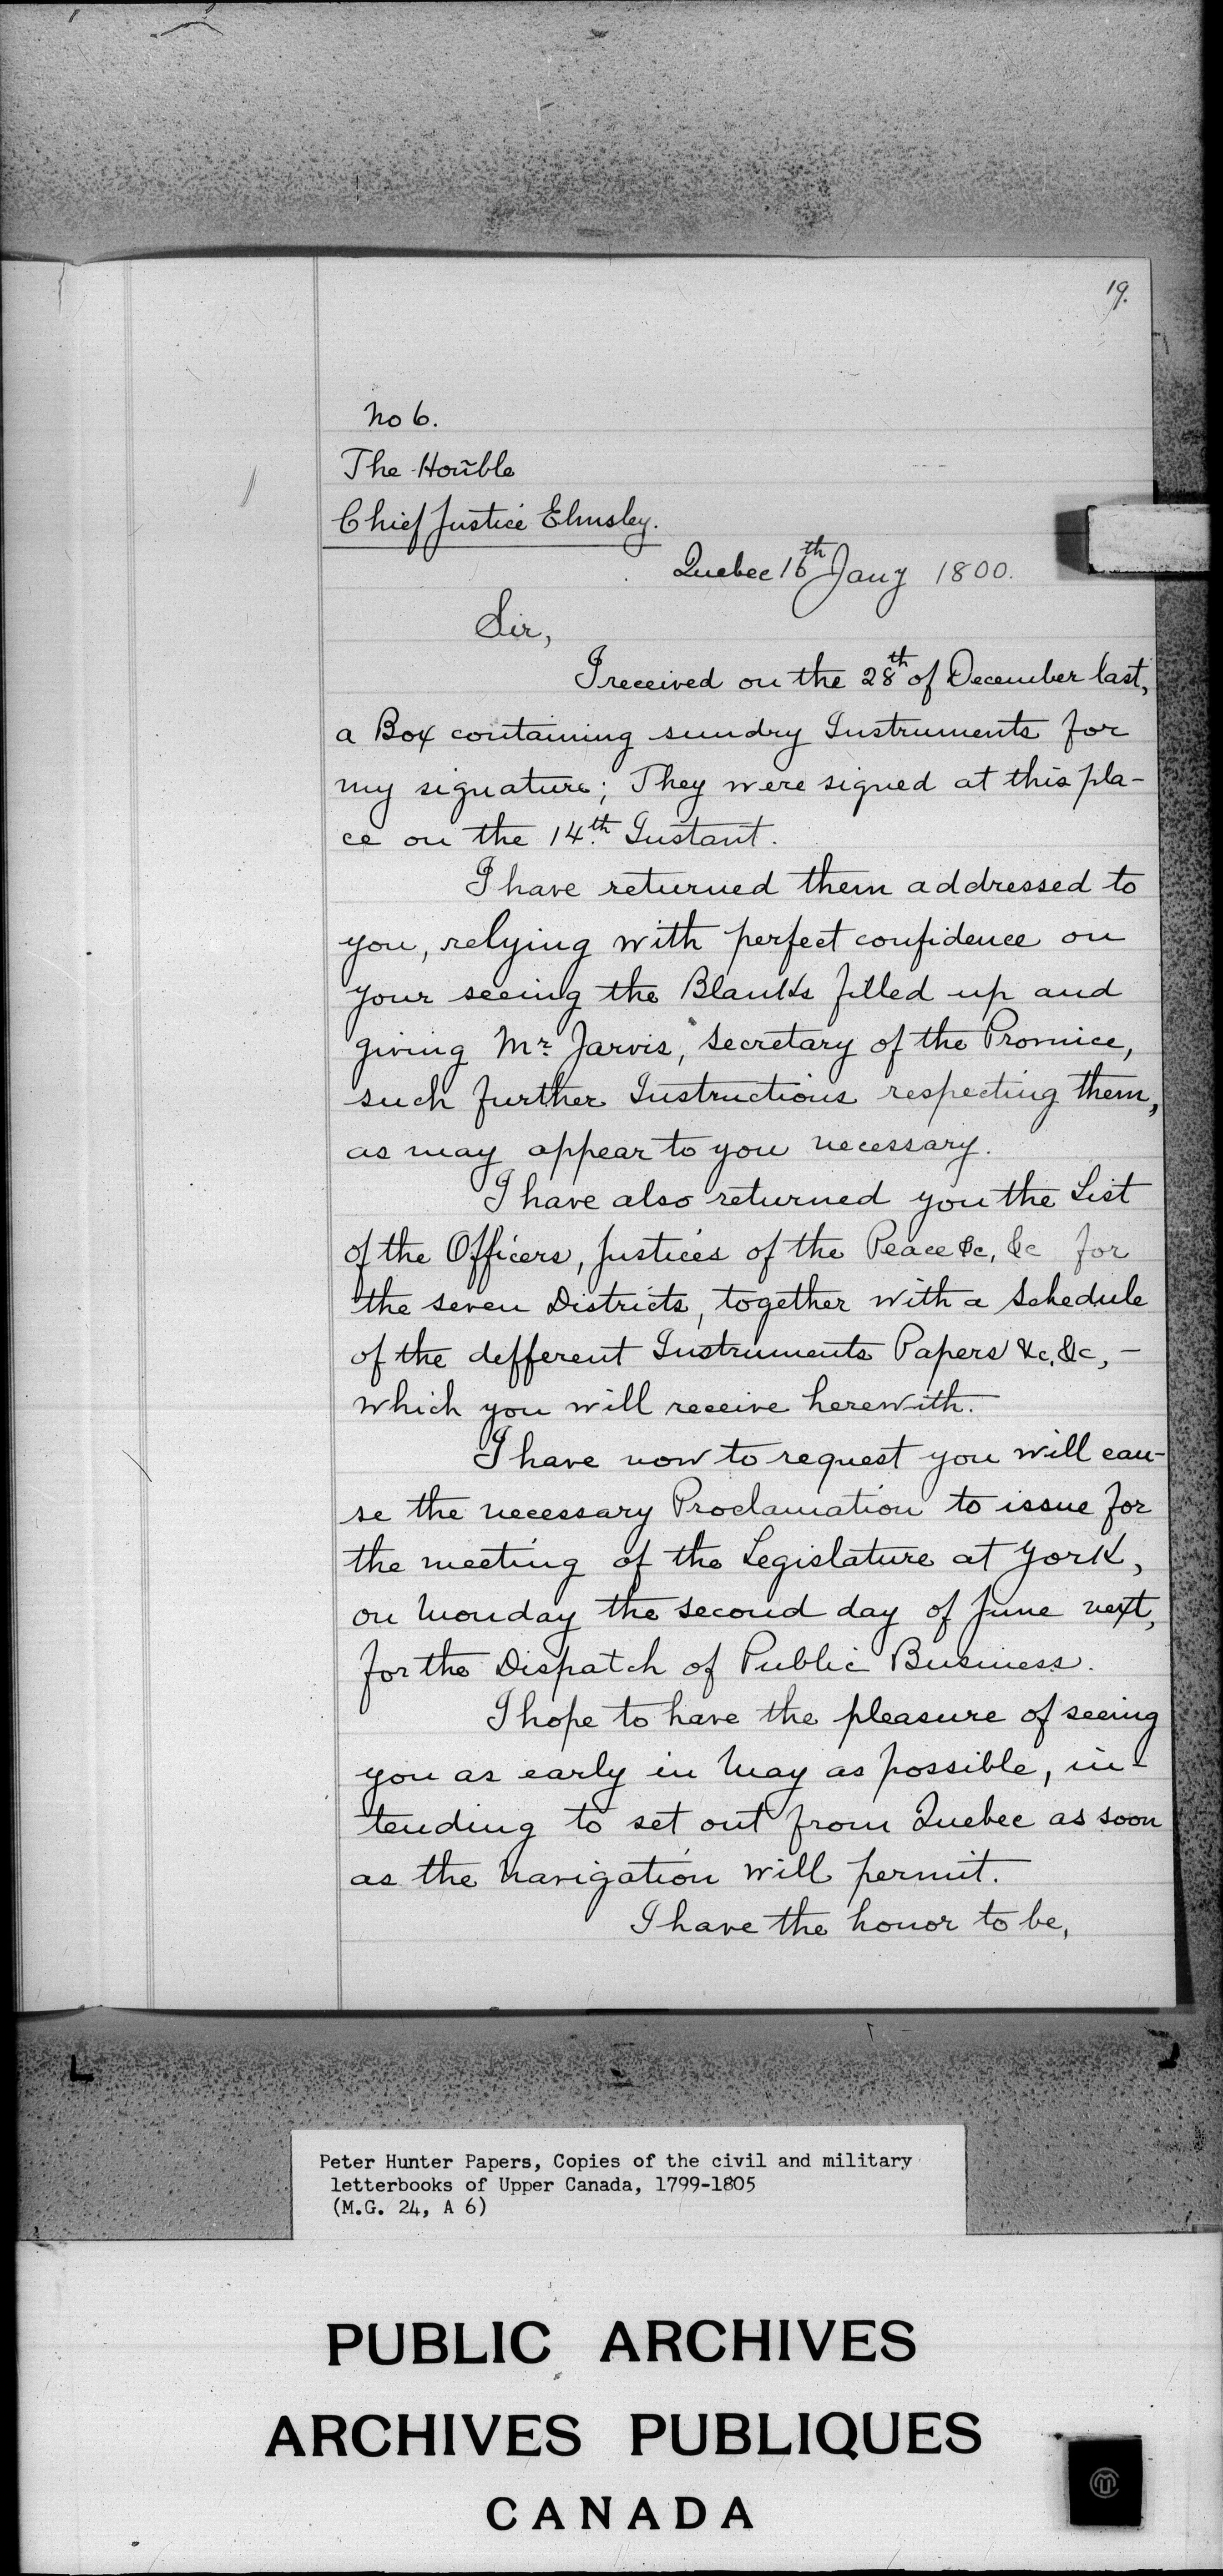 19.
No 6.
The Hoñble
Chief Justice Elmsley.
Quebec 16th Jany 1800.
Sir,
I received on the 28th of December last,
a Box containing sundry Instruments for
my signature; They were signed at this pla-
ce on the 14th Instant.
I have returned them addressed to
you, relying with perfect confidence on
your seeing the Blanks filled up and
giving Mr. Jarvis, Secretary of the Province,
such further Instructions respecting them,
as may appear to you necessary.
I have also returned you the List
of the Officers, Justices of the Peace &c, &c for
the seven Districts, together with a Schedule
of the defferent Instruments Papers &c, &c, -
which you will receive herewith.
I have now to request you will cau-
se the necessary Proclamation to issue for
the meeting of the Legislature at York,
on Monday the second day of June next,
for the Dispatch of Public Business.
I hope to have the pleasure of seeing
you as early in May as possible, in-
tending to set out from Quebec as soon
as the Navigation will permit.
I have the honor to be,
Peter Hunter Papers, Copies of the civil and military
letterbooks of Upper Canada, 1799-1805
(M.G. 24, A 6)
PUBLIC ARCHIVES
ARCHIVES PUBLIQUES
CANADA